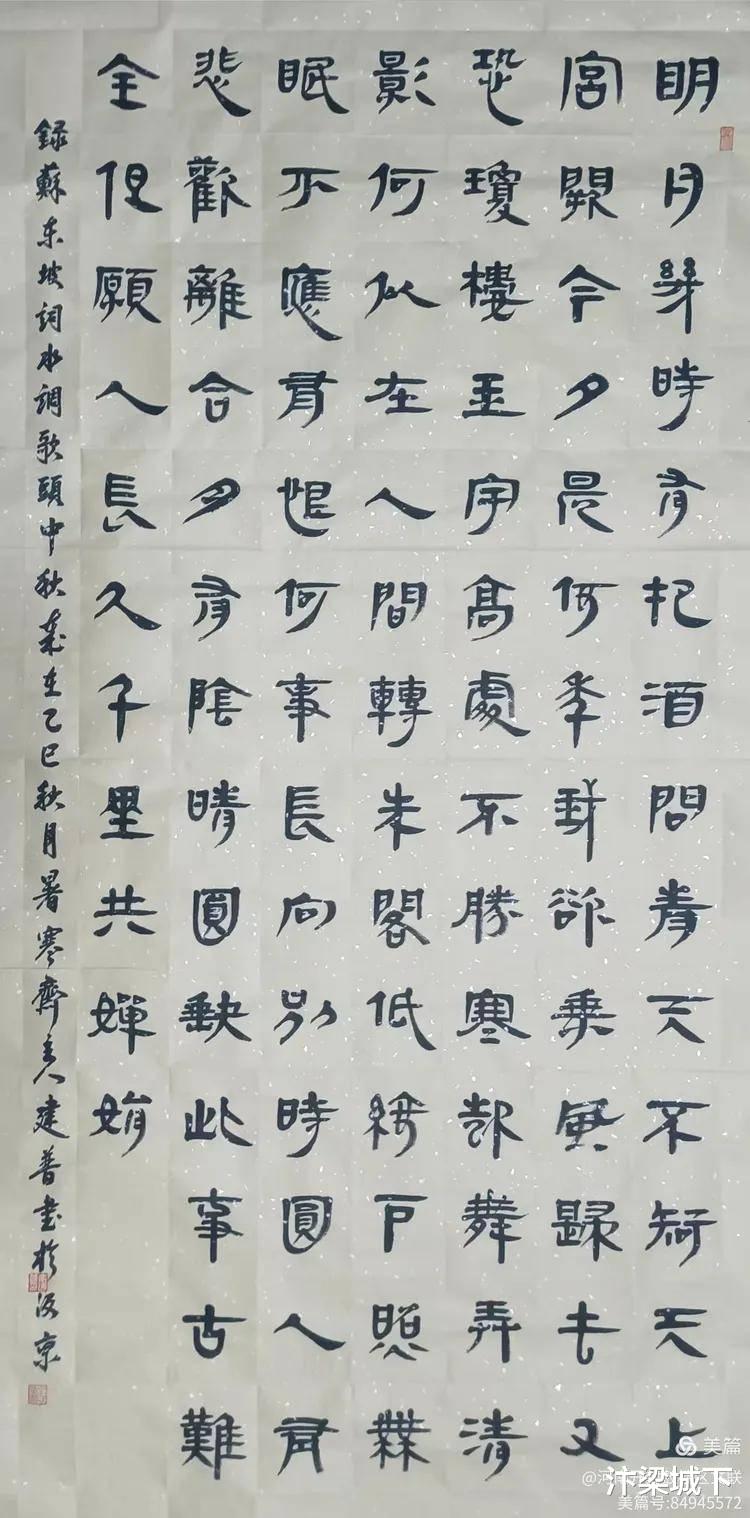 明月幾時有把酒問青天不知天上
宮闕今夕是何年我欲乘風歸去又
恐瓊樓玉宇高處不勝寒起舞弄清
影何似在人間轉朱閣低綺戶照無
眠不應有恨何事長向別時圓人有
悲歡離合月有陰晴圓缺此事古難
全但願人長久千里共嬋娟
錄蘇東坡詞水調歌頭中秋歲在乙巳秋月暑寒齋主人建普書於汴京
美篇
@河南
汴梁城下
美篇号:84945572